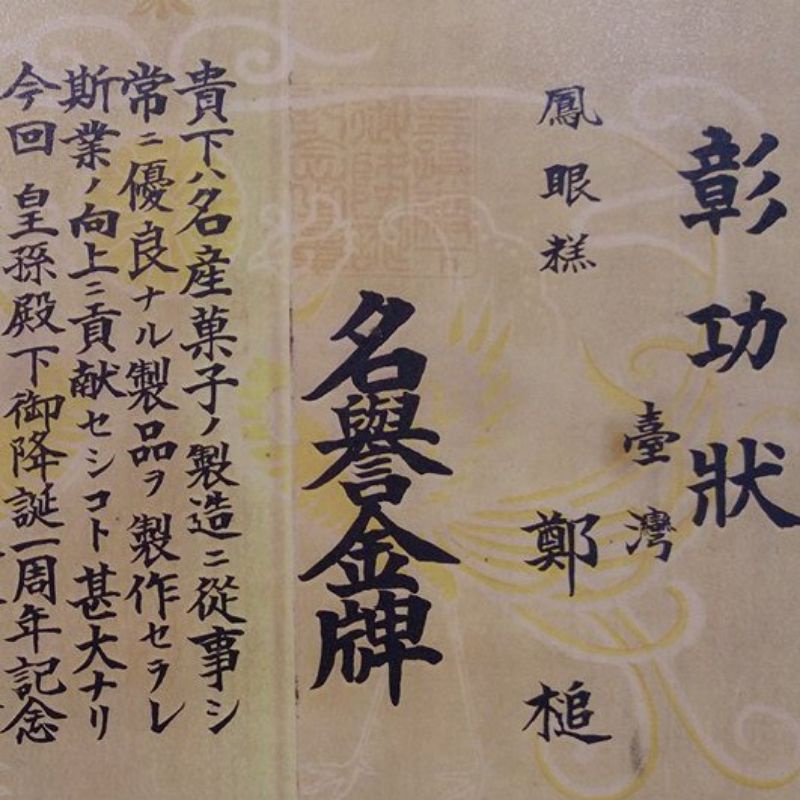 彰功狀
臺灣
鳳眼糕 鄭槌
名譽金牌
貴下ハ名産菓子ノ製造ニ從事シ
常ニ優良ナル製品ヲ製作セラレ
斯業ノ向上ニ貢献セシコト甚大ナリ
今回 皇孫殿下御降誕一周年記念